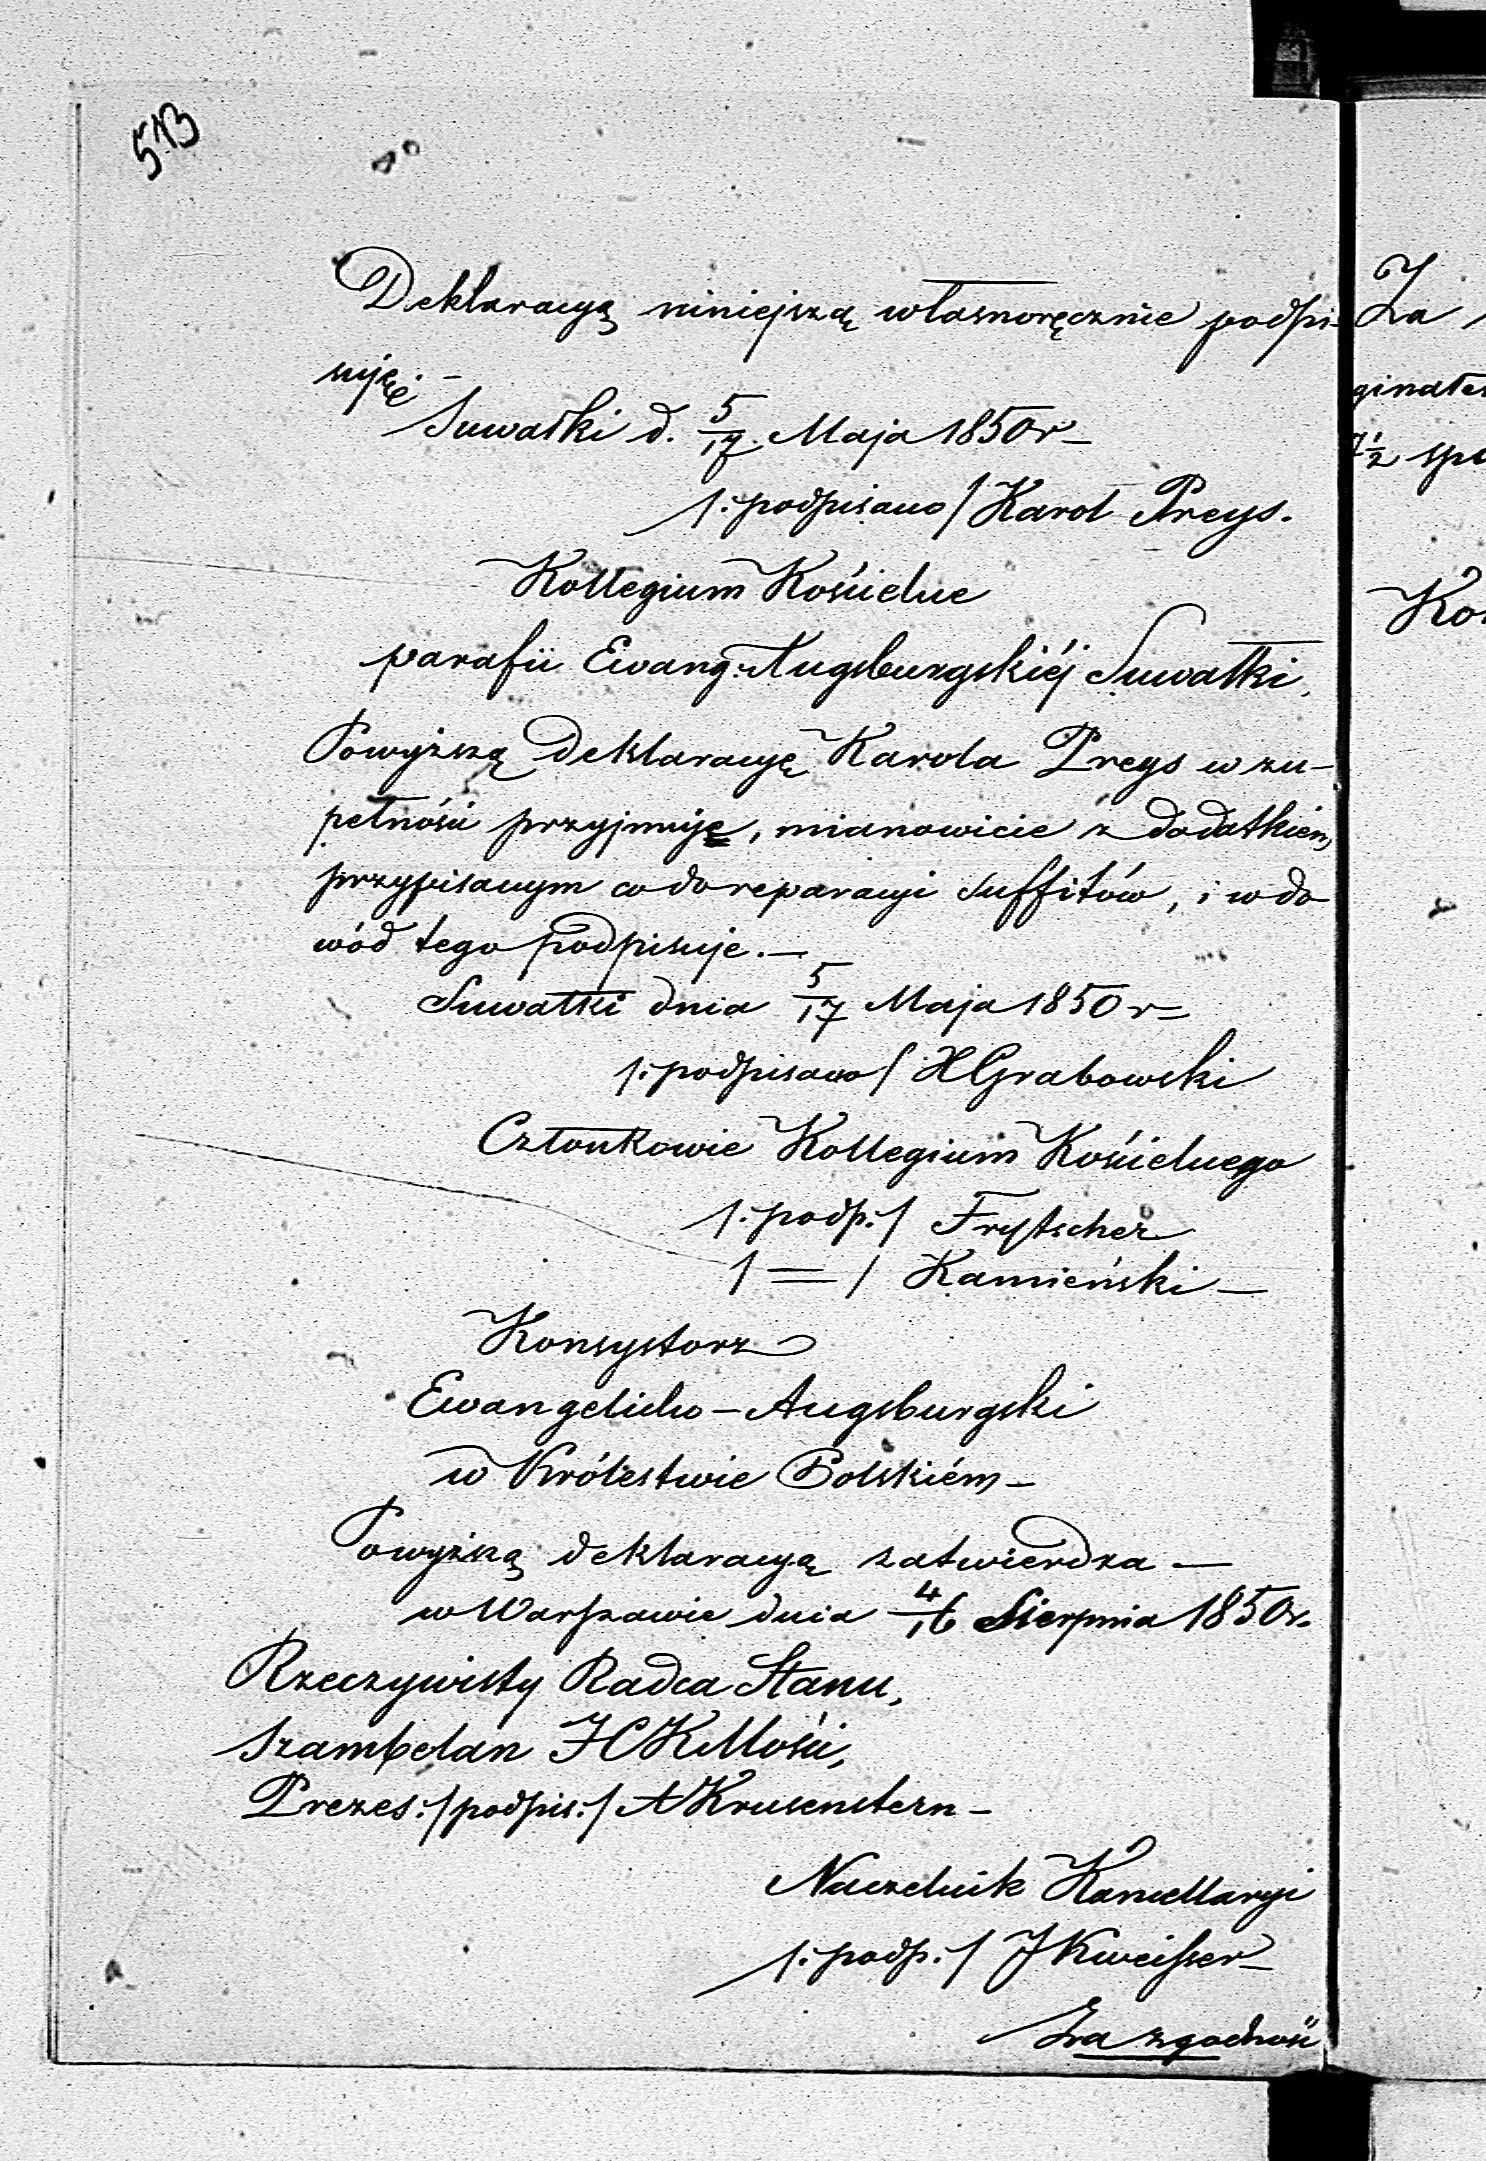 513
Deklaracyą niniejszą własnoręcznie podpi-
suję. -
Suwałki d. 5/17. Maja 1850r -
/: podpisano / Karol Preys.
Kollegium Kościelne
parafii Ewang: Augsburgskiéj Suwałki,
Powyższą Deklaracyę Karola Preys w zu-
pełności przyjmuję, mianowicie z dodatkiem
przypisanym co do reparacyi suffitów, i w do-
wód tego podpisuje. -
Suwałki dnia 5/17 Maja 1850 r =
/: podpisano / XGrabowski
Członkowie Kollegium Kościelnego
/: podp: / Frytscher
/ = / Kamieński -
Konsystorz
Ewangelicko - Augsburgski
w Królestwie Polskiém -
Powyższą deklaracyą zatwierdza -
w Warszawie dnia 4/16 Sierpnia 1850r.
Rzeczywisty Radca Stanu,
Szambelan JCKMości,
Prezes: / podpis: / AKrusenstern -
Naczelnik Kancellaryi
/: podp: / JKweisser -
Za zgodność
Za
ginałe
7 1/2